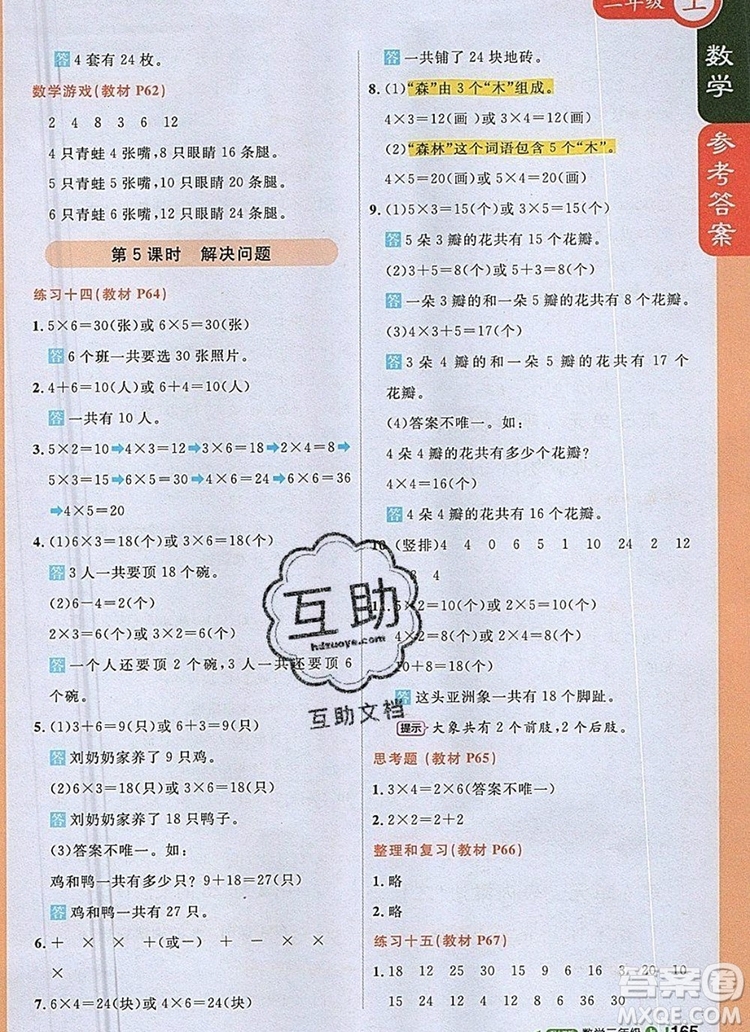 二年级 上
数学
参考答案
答 4 套有 24 枚。
数学游戏(教材 P62)
2 4 8 3 6 12
4 只青蛙 4 张嘴,8 只眼睛 16 条腿。
5 只青蛙 5 张嘴,10 只眼睛 20 条腿。
6 只青蛙 6 张嘴,12 只眼睛 24 条腿。
第 5 课时 解决问题
练习十四(教材 P64)
1. 5×6=30(张)或 6×5=30(张)
答 6 个班一共要选 30 张照片。
2. 4+6=10(人)或 6+4=10(人)
答 一共有 10 人。
3. 5×2=10→4×3=12→3×6=18→2×4=8→
5×3=15→2×6=12→4×6=24→6×6=36→
→4×5=20
4. (1)6×3=18(个)或 3×6=18(个)
答 3 人一共要顶 18 个碗。
(2)6-4=2(个)
2×3=6(个)或 3×2=6(个)
答 一个人还要顶 2 个碗,3 人一共还要顶 6
个碗。
5. (1)3+6=9(只)或 6+3=9(只)
答 刘奶奶家养了 9 只鸡。
(2)6×3=18(只)或 3×6=18(只)
答 刘奶奶家养了 18 只鸭子。
(3)答案不唯一。如:
鸡和鸭一共有多少只? 9+18=27(只)
答 鸡和鸭一共有 27 只。
6. + × × +(或一) + × ×
×
7. 4×6=24(块)或 6×4=24(块)
答 一共铺了 24 块地砖。
8. (1)“森”由 3 个“木”组成。
4×3=12(画)或 3×4=12(画)
(2)“森林”这个词语包含 5 个“木”。
4×5=20(画)或 5×4=20(画)
9. (1)5×3=15(个)或 3×5=15(个)
答 5 朵 3 瓣的花共有 15 个花瓣。
(2)3+5=8(个)或 5+3=8(个)
答 一朵 3 瓣的花和一朵 5 瓣的花共有 8 个花瓣。
(3)4×3=12(个)或 3×4=12(个)
答 3 朵 4 瓣的花和 4 朵 3 瓣的花都有 12 个
花瓣。
(4)答案不唯一。如:
4 朵 4 瓣的花共有多少个花瓣?
4×4=16(个)
答 4 朵 4 瓣的花共有 16 个花瓣。
10. (竖排)4 4 0 6 5 1 10 24 2 12
8 4
5×2=10(个)或 2×5=10(个)
4×2=8(个)或 2×4=8(个)
10+8=18(个)
答 这头亚洲象共有 18 个脚趾。
提示 大象共有 2 个前肢,2 个后肢。
思考题(教材 P65)
1. 3×4=2×6(答案不唯一)
2. 2×2=2+2
整理和复习(教材 P66)
1. 略
2. 略
练习十五(教材 P67)
1. 18 12 25 30 16 16 3 20 10
15 24 30 12 8 4 6
数学二年级 上 165
互助
hdzuoye.com
互助文档
答案圈
MXQE.COM